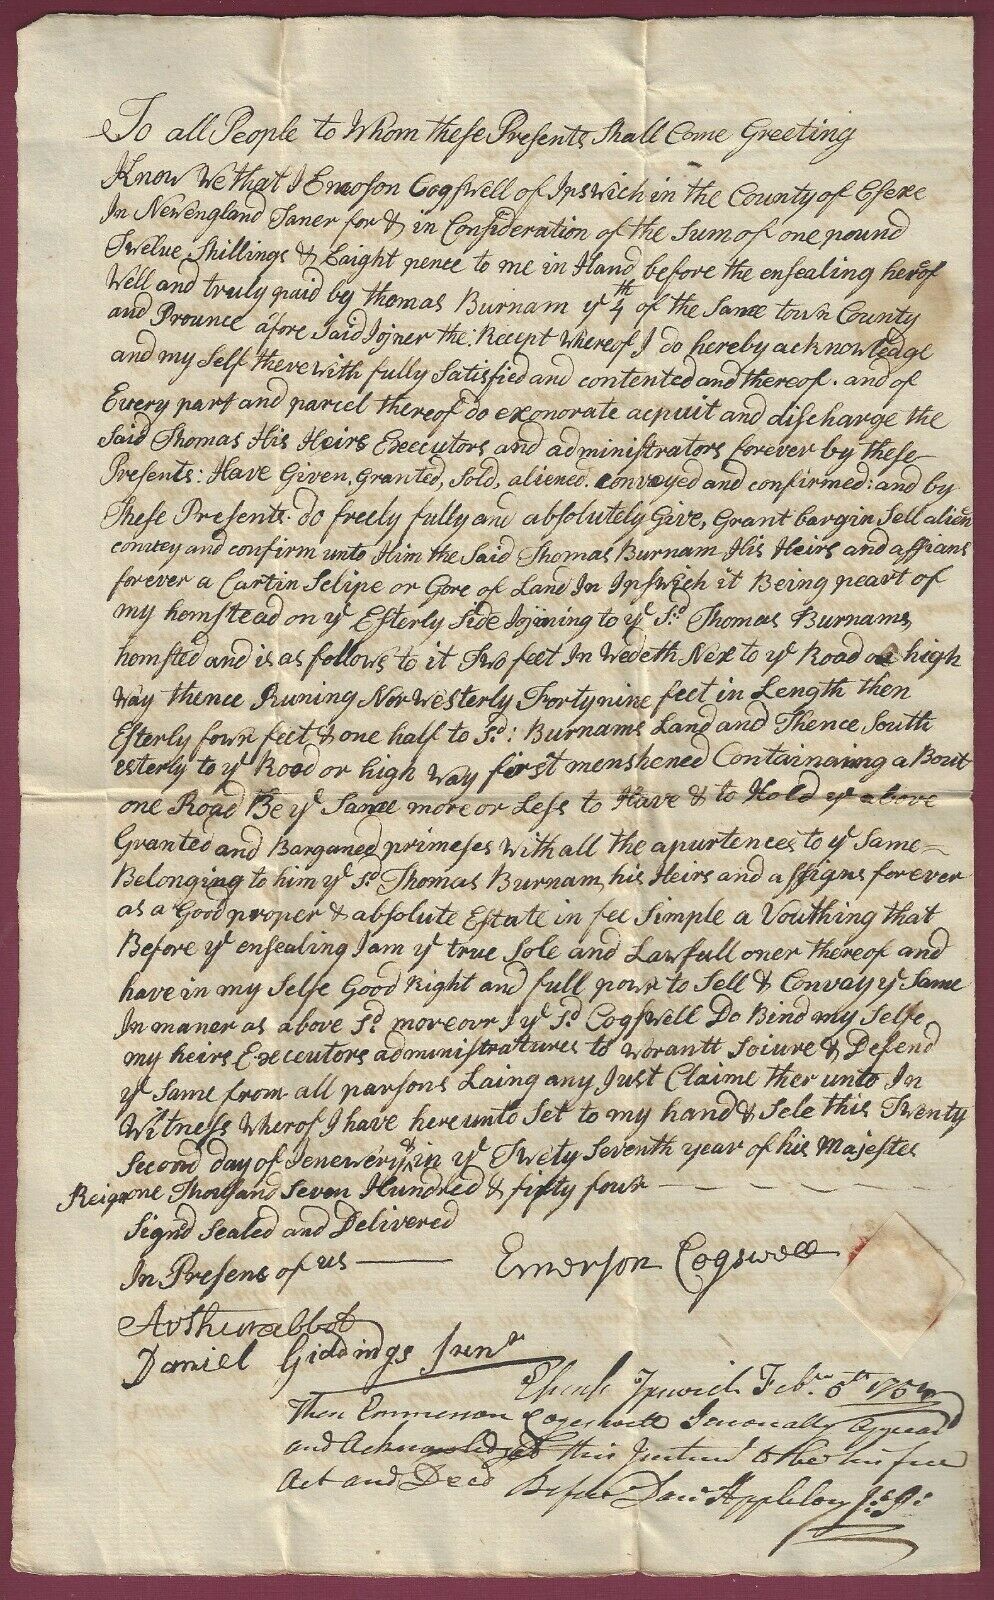 To all People to Whom these Presents Shall Come Greeting
Know We that I Emoson Cogswell of Ipswich in the County of Esexe
In Newengland Taner for & in Consideration of the Sum of one pound
Twelve Shillings & Eaight pence to me in Hand before the ensealing herof
Well and truly paid by Thomas Burnam ye 4th of the Same town County
and Provnce afore Said Jojner the Recept Whereof I do hereby acknowledge
and my Self therewith fully Satisfied and contented and thereof. and of
Every part and parcel thereof do exonorate acquit and discharge the
Said Thomas His Heirs Executors and administrators forever by these
Presents: Have Given, Granted, Sold, aliened conveyed and confirmed: and by
these Presents do freely fully and absolutely Give, Grant bargin Sell alien
convey and confirm unto Him the Said Thomas Burnam His Heirs and assians
forever a Cartin Selipe or Gore of Land In Ipswich it Being peart of
my homstead on ye Esterly Side Jojning to ye Sd Thomas Burnams
homsted and is as follows to it Two feet In Wedeth Nex to ye Road or high
Way thence Runing Norwesterly Fortynine feet in Length then
Esterly fowr feet & one half to Sd: Burnams Land and Thence South
esterly to ye Road or high Way first menshened Containaing a Bout
one Road Be ye Same more or Less to Have & to Hold ye above
Granted and Barganed primeses With all the apurtences to ye Same
Belonging to him ye Sd Thomas Burnam his Heirs and assigns forever
as a Good proper & absolute Estate in fee Simple a Vouthing that
Before ye ensealing I am ye true Sole and Lawfull oner thereof and
have in my Selfe Good Right and full powr to Sell & Convay ye Same
In maner as above Sd moreovr I ye Sd Cogswell Do Bind my Selfe
my heirs Executors administratures to Worantt Soiure & Defend
ye Same from all parsons Laing any Just Claime ther unto In
Witness Wherof I have here unto Set to my hand & Sele this Twenty
Second day of Jenewery & in ye Twety Seventh year of his Majestes
Reign one Thousand Seven Hundred & fifty four
Signd Sealed and Delivered
In Presens of us
Emerson Cogswell
Arthur abbot
Daniel Giddings Junr
Essex Ipswich Febr 5th 1754
Then Emmerson Cogeswell Personally Appeard
and Acknowledged this Instrumt to be his free
Act and Deed Before Danl Appleton Js Ps